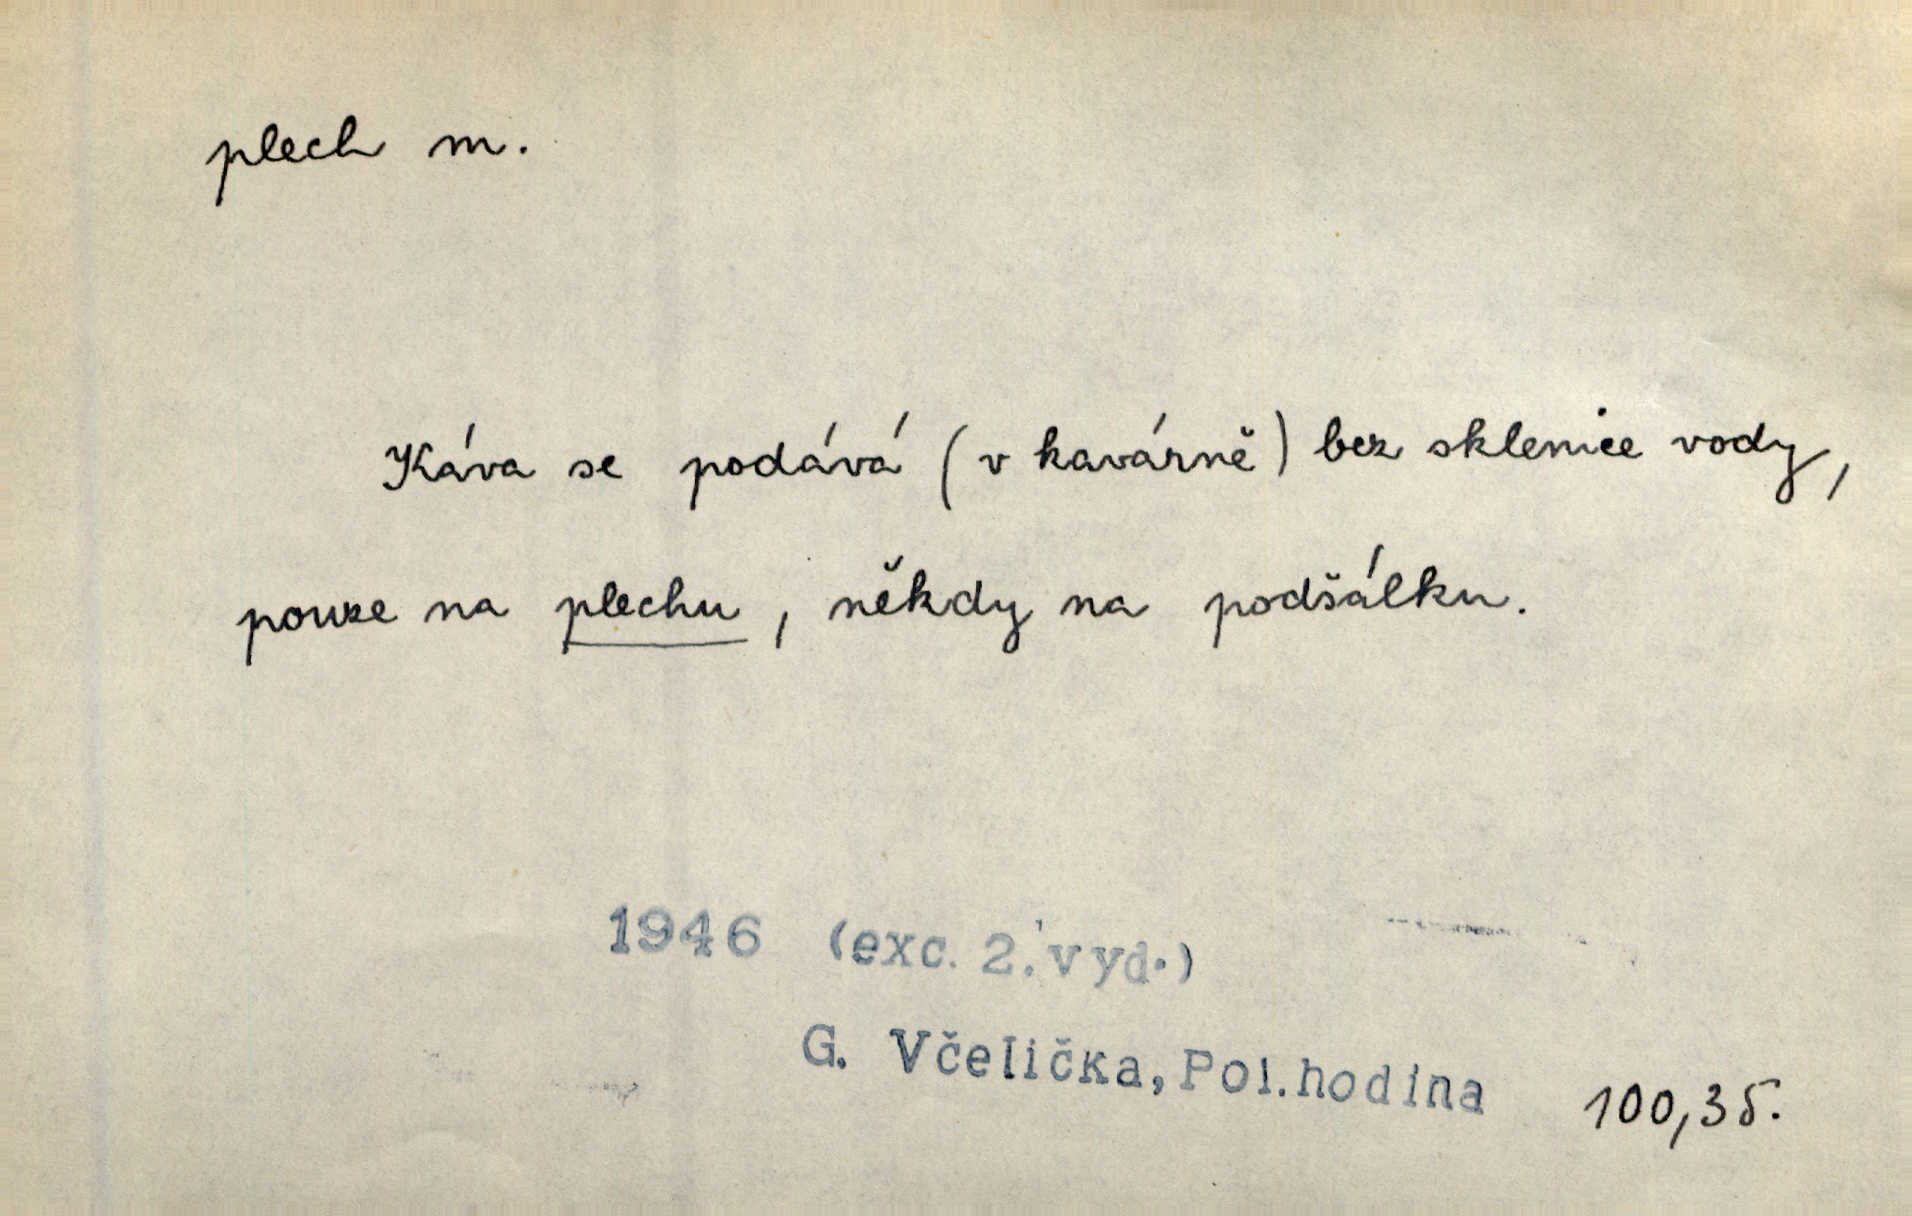 plech m.
Káva se podává (v kavárně) bez sklenice vody,
pouze na plechu, někdy na podšálku.
1946 (exc. 2. vyd.)
G. Včelička, Pol. hodina 100,35.